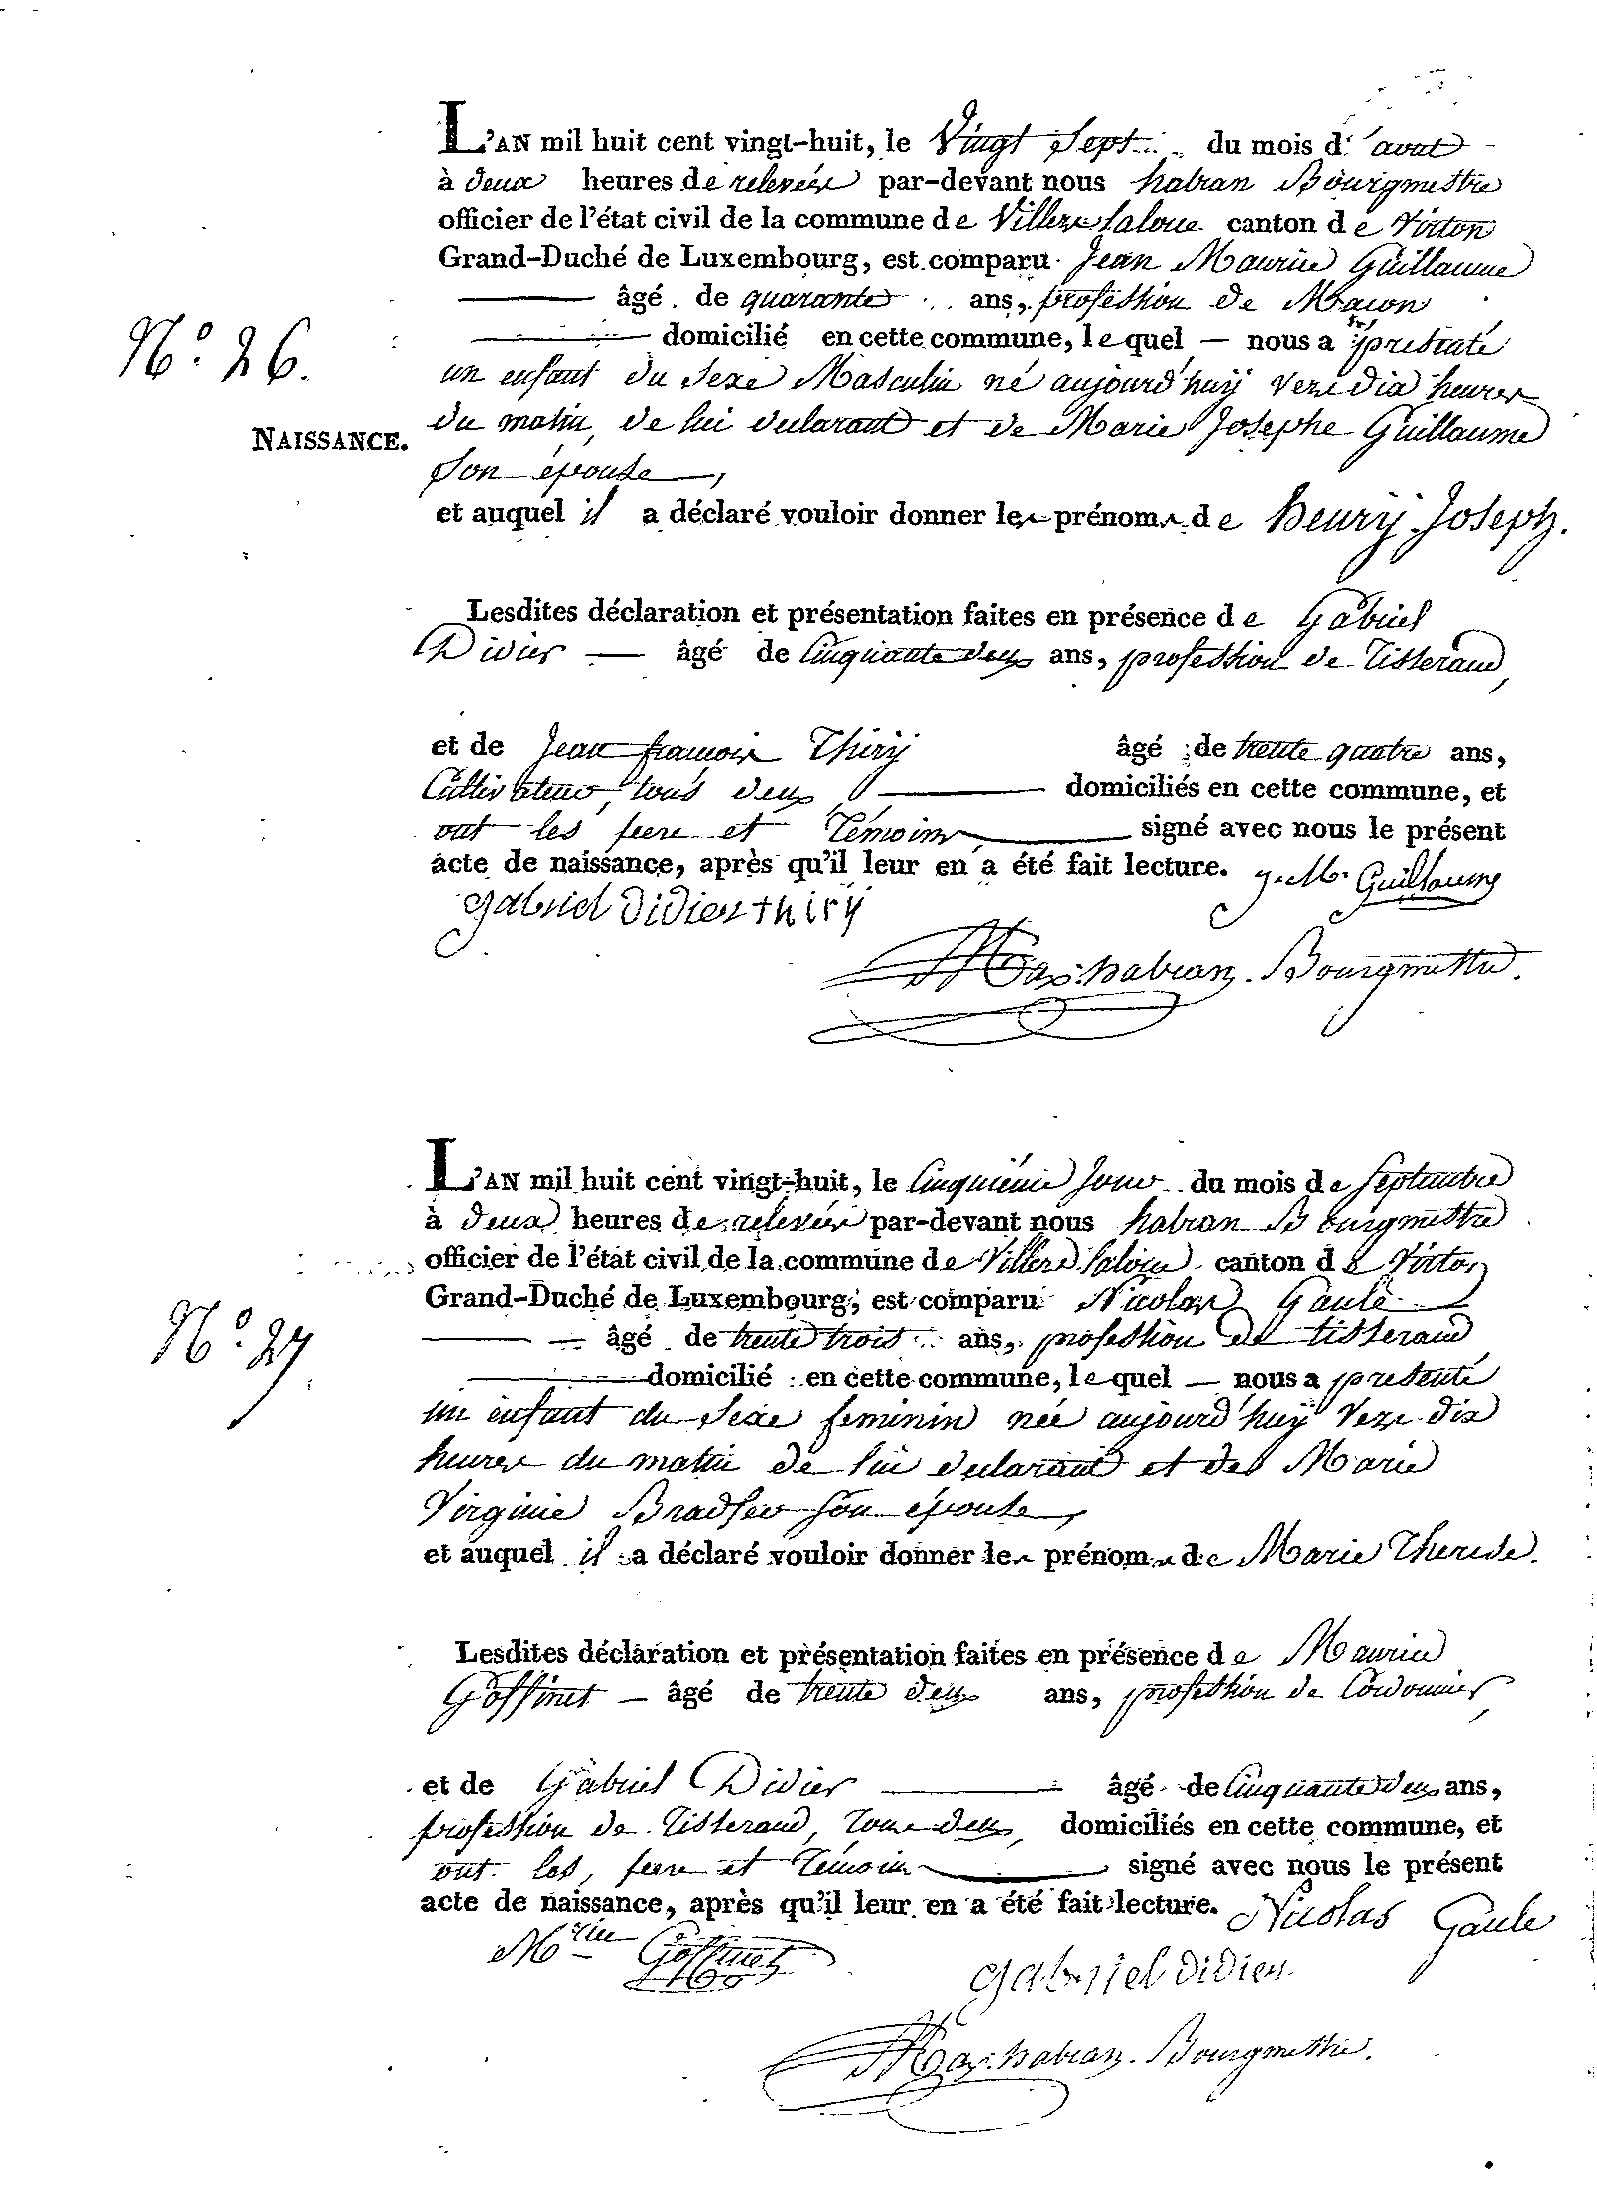 L'AN mil huit cent vingt-huit, le Vingt Sept du mois d'avut
à deux heures de relevée par-devant nous habran Bourgmestre
officier de l'état civil de la commune de Villers laloue canton de Virton
Grand-Duché de Luxembourg, est comparu Jean Maurice Guillaume
âgé de quarante ans, profession de Macon
domicilié en cette commune, lequel — nous a presenté
N.° 26.
un enfant du sexe Masculin né aujourd'huy vers dix heures
du matin, de lui declarant et de Marie Josephe Guillaume
NAISSANCE.
son épouse,
et auquel il a déclaré vouloir donner les prénoms de henry Joseph.
Lesdites déclaration et présentation faites en présence de Gabriel
Didier — âgé de Cinquante deux ans, profession de Tisserand,
et de Jean francois Thiry âgé de trente quatre ans,
Cultivateur, tous deux domiciliés en cette commune, et
ont les peere et Témoins signé avec nous le présent
acte de naissance, après qu'il leur en a été fait lecture. J. M. Guillaume
gabriel didier thiry
Max. habran. Bourgmestre.
L'AN mil huit cent vingt-huit, le Cinquiéme Jour du mois de Septembre
à deux heures de relevée par-devant nous habran Bourgmestre
officier de l'état civil de la commune de Villers laloue canton de Virton
Grand-Duché de Luxembourg, est comparu Nicolas Gaule
N.° 27
âgé de trente trois ans, profession de tisserand
domicilié en cette commune, lequel — nous a presenté
un enfant du sexe feminin née aujourd'huy vers dix
heures du matin de lui declarant et de Marie
Virginie son épouse,
et auquel il a déclaré vouloir donner les prénoms de Marie Therese.
Lesdites déclaration et présentation faites en présence de Maurice
Goffinet — âgé de trente deux ans, profession de Cordonnier,
et de Gabriel Didier âgé de Cinquante deux ans,
profession de Tisserand, tous deux, domiciliés en cette commune, et
ont les, peere et Témoins signé avec nous le présent
acte de naissance, après qu'il leur en a été fait lecture. Nicolas Gaule
Mrice Goffinet
gabriel didier
Max. habran. Bourgmestre.